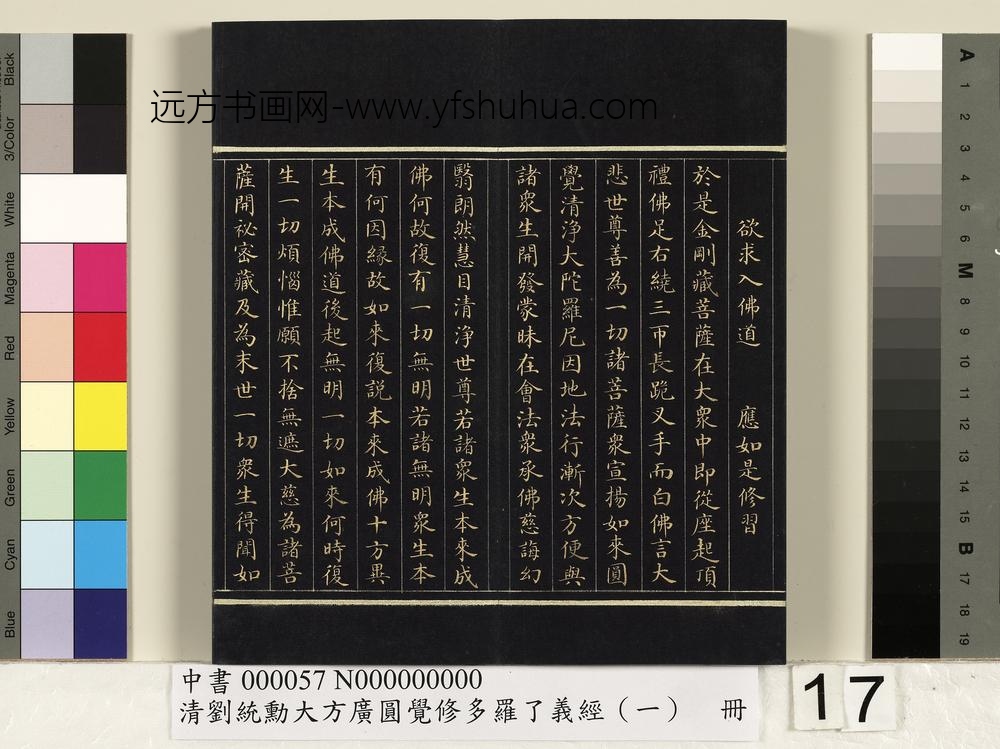 远方书画网-www.yfshuhua.com
欲求入佛道　應如是修習
於是金剛藏菩薩在大衆中即從座起頂
禮佛足右繞三帀長跪叉手而白佛言大
悲世尊善為一切諸菩薩衆宣揚如來圓
覺清淨大陀羅尼因地法行漸次方便與
諸衆生開發蒙昧在會法衆承佛慈誨幻
翳朗然慧目清淨世尊若諸衆生本來成
佛何故復有一切無明若諸無明衆生本
有何因緣故如來復說本來成佛十方異
生本成佛道後起無明一切如來何時復
生一切煩惱惟願不捨無遮大慈為諸菩
薩開祕密藏及為末世一切衆生得聞如
中書 000057 N000000000
清劉統勳大方廣圓覺修多羅了義經（一）　冊
17
Black
3/Color
White
Magenta
Red
Yellow
Green
Cyan
Blue
A
1
2
3
4
5
6
M
8
9
10
11
12
13
14
15
B
17
18
19